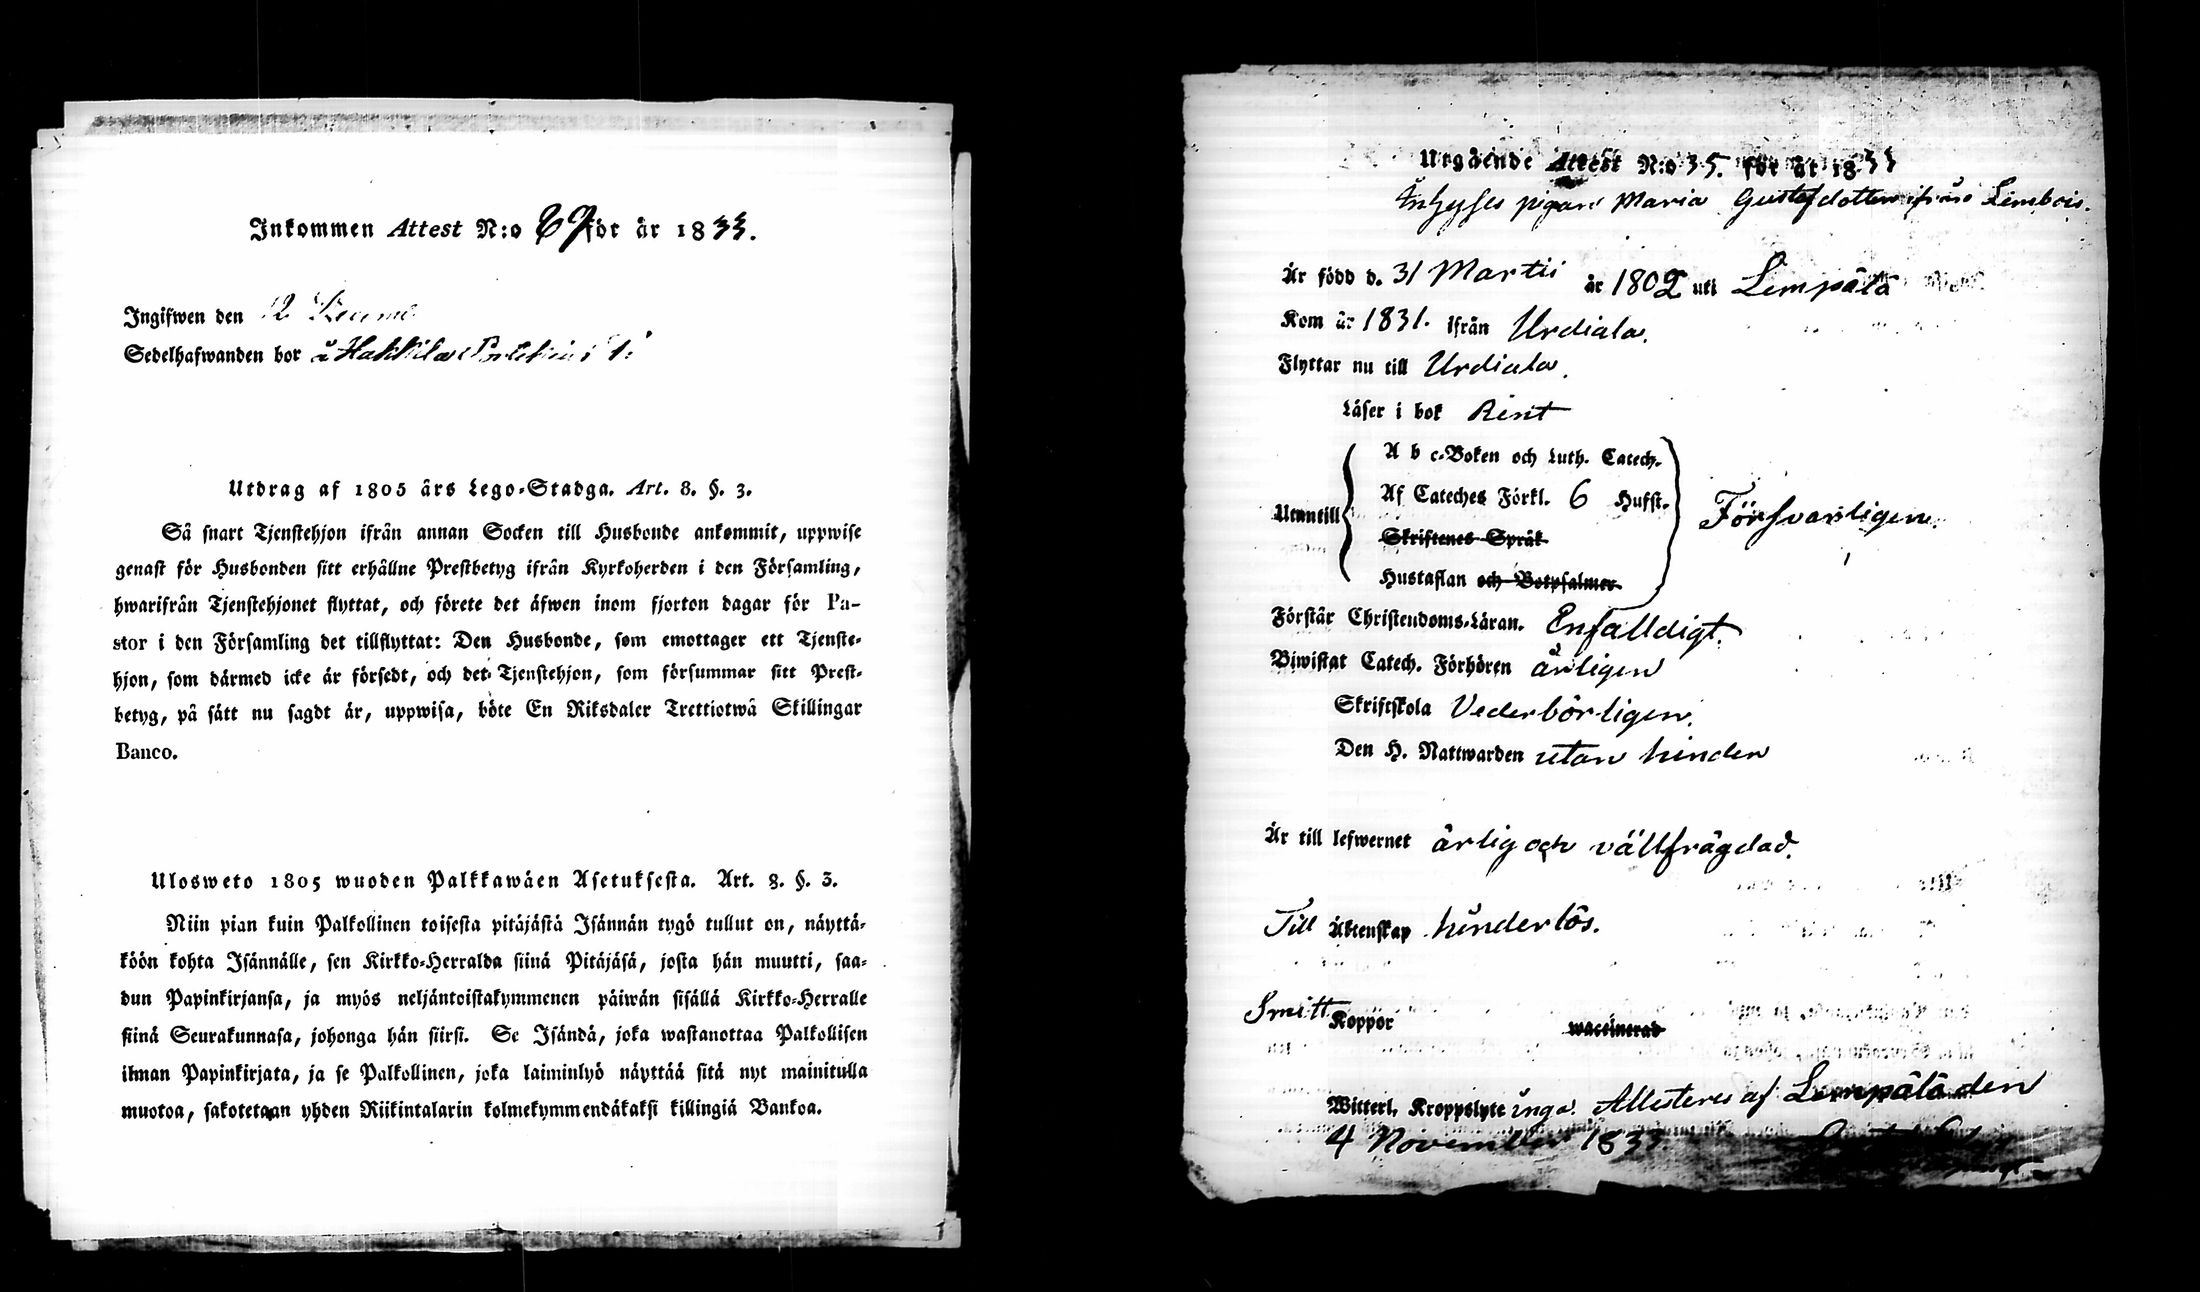 Inkommen Attest N:o 69 för år 1833.
Ingifwen den 12
Sedelhafwanden bor å Hakkila
Utdrag af 1805 års Lego-Stadga. Art. 8. §. 3.
Så snart Tjenstehjon ifrån annan Socken till Husbonde ankommit, uppwise
genast för Husbonden sitt erhållne Prestbetyg ifrån Kyrkoherden i den Församling,
hwarifrån Tjenstehjonet flyttat, och förete det äfwen inom fjorton dagar för Pa-
stor i den Församling det tillflyttat: Den Husbonde, som emottager ett Tjenste-
hjon, som därmed icke är försedt, och det Tjenstehjon, som försummar sitt Prest-
betyg, på sätt nu sagdt är, uppwisa, böte En Riksdaler Trettiotwå Skillingar
Banco.
Ulosweto 1805 wuoden Palkkawäen Asetuksesta. Art. 8. §. 3.
Niin pian kuin Palkollinen toisesta pitäjästä Isännän tygö tullut on, näyttä-
köön kohta Isännälle, sen Kirkko-Herralda siinä Pitäjäsä, josta hän muutti, saa-
dun Papinkirjansa, ja myös neljäntoistakymmenen päiwän sisällä Kirkko-Herralle
siinä Seurakunnasa, johonga hän siirsi. Se Isändä, joka wastanottaa Palkollisen
ilman Papinkirjata, ja se Palkollinen, joka laiminlyö näyttää sitä nyt mainitulla
muotoa, sakotetaan yhden Riikintalarin kolmekymmendäkaksi killingiä Bankoa.
Utgående Attest N:o 35. för år 1833
Inhyses pigan Maria Gustafsdotter ifrån Limbois.
Är född d. 31 Martii år 1802 uti Lempälä
Kom år 1831. ifrån Urdiala.
Flyttar nu till Urdiala.
Läser i bok Rent
A b c-Boken och Luth. Catech.
Af Cateches Förkl. 6 Hufst.
Utantill Försvarligen.
Skriftenes Språk
Hustaflan och Botpsalmer
Förstår Christendoms-Läran. Enfalldigt.
Biwistat Catech. Förhören årligen
Skriftskola Vederbörligen.
Den H. Nattwarden utan hinder
Är till lefwernet ärlig och vällfrägdad.
Till Äktenskap hinderlös.
Smitt Koppor waccinerad
Witterl. Kroppslyte inga. Attesteres af Lempälä den
4 November 1833.